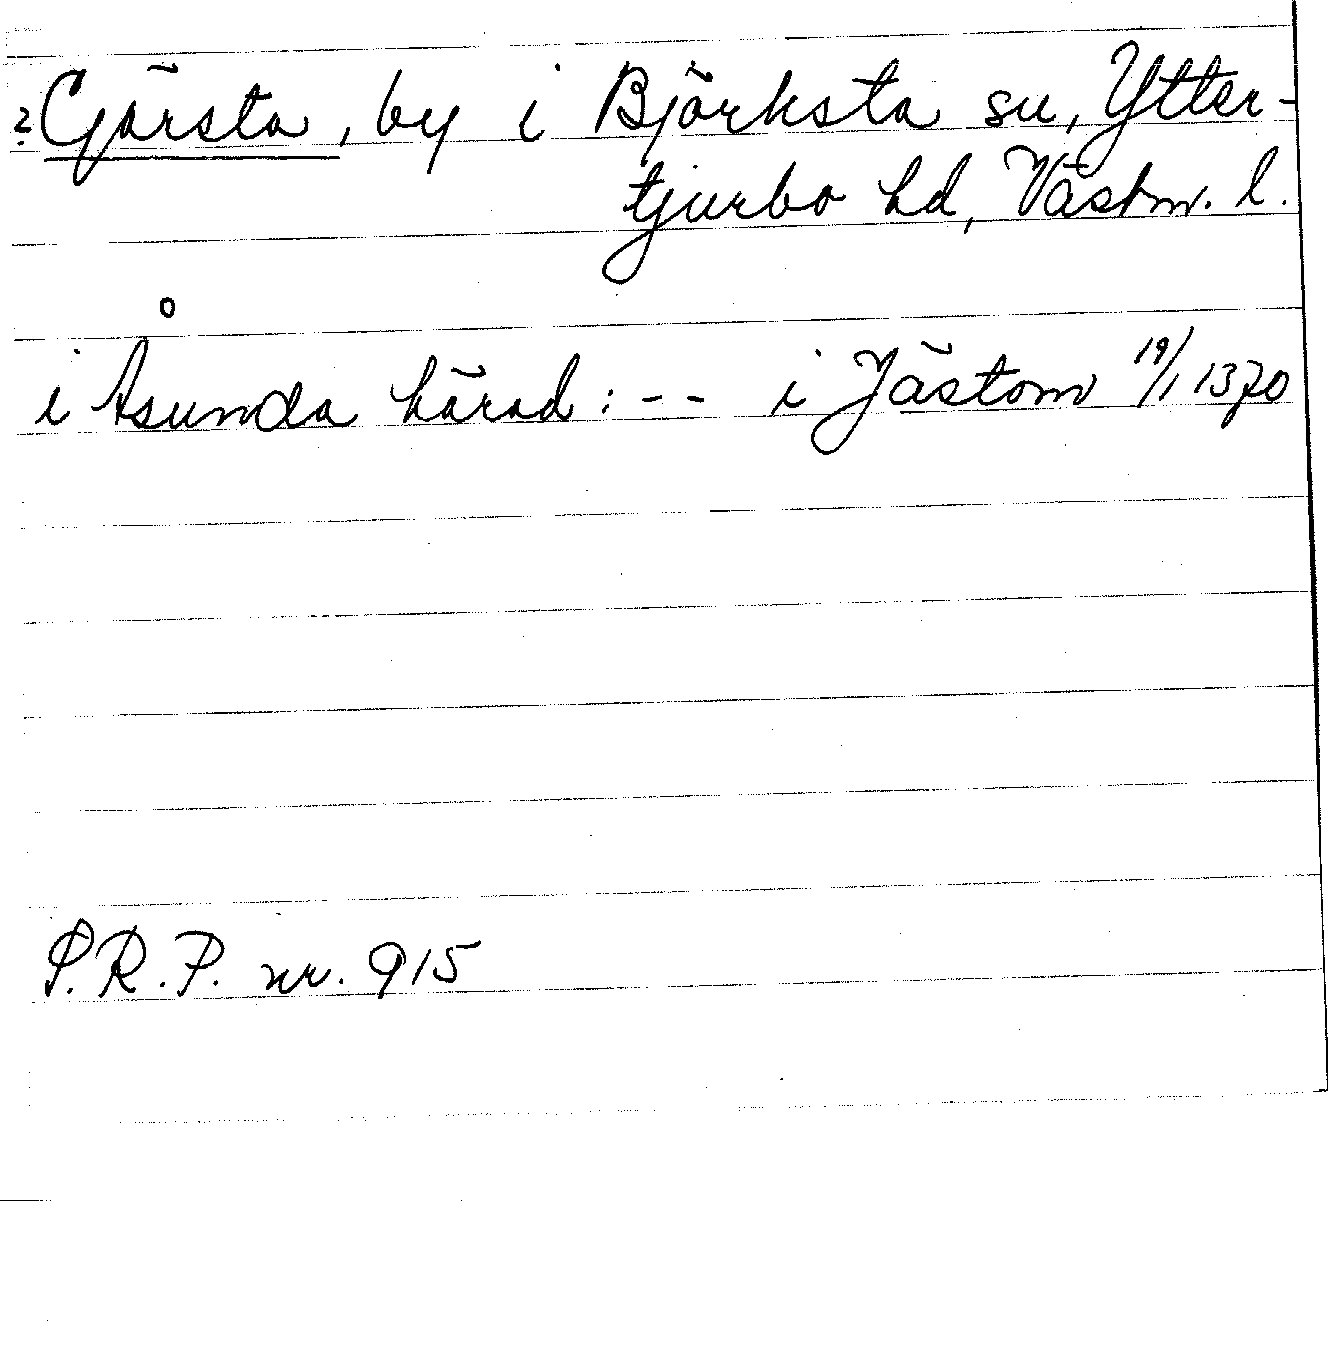 ?Gärsta, by i Björksta sn, Ytter-
tjurbo hd, Västm. l.
i Åsunda härad: -- i Jästom 19/1 1370
S.R.P. nr. 915